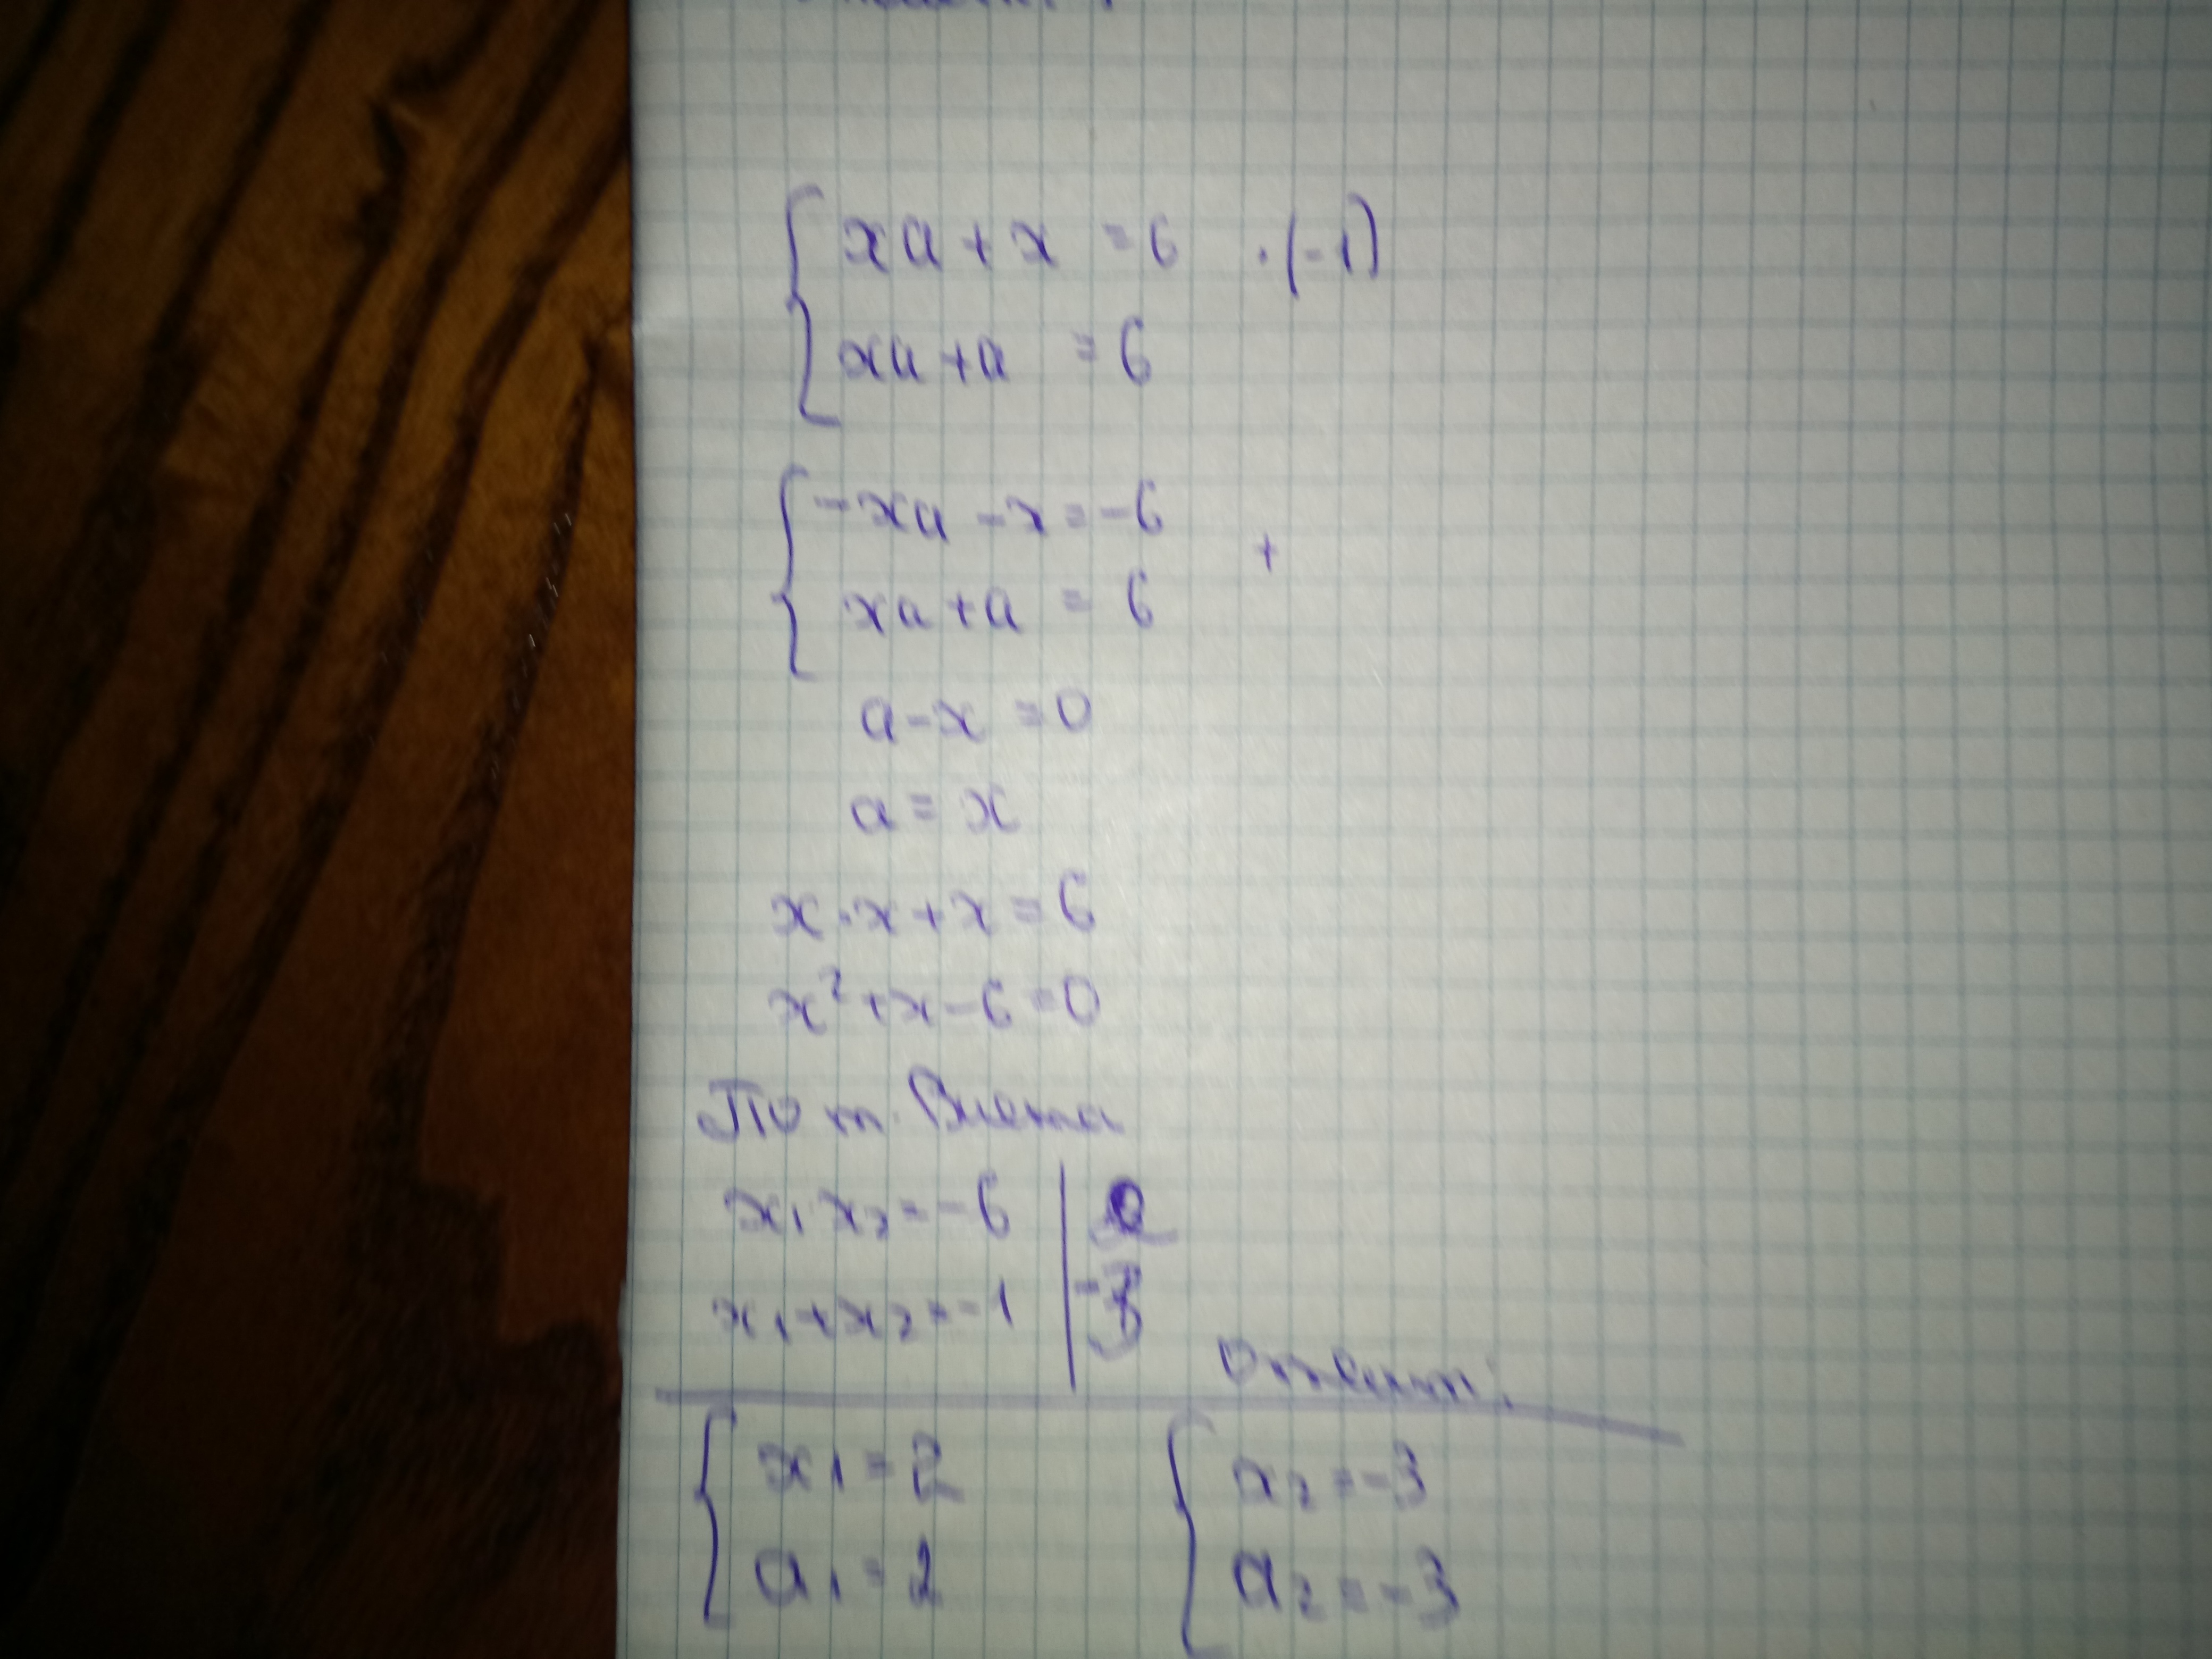 xa + x = 6 · (-1)
xa + a = 6
-xa - x = -6
+
xa + a = 6
a - x = 0
a = x
x · x + x = 6
x² + x - 6 = 0
По т. Виета
x₁ x₂ = -6 | 2
x₁ + x₂ = -1 | -3
Ответ:
x₁ = 2 x₂ = -3
a₁ = 2 a₂ = -3